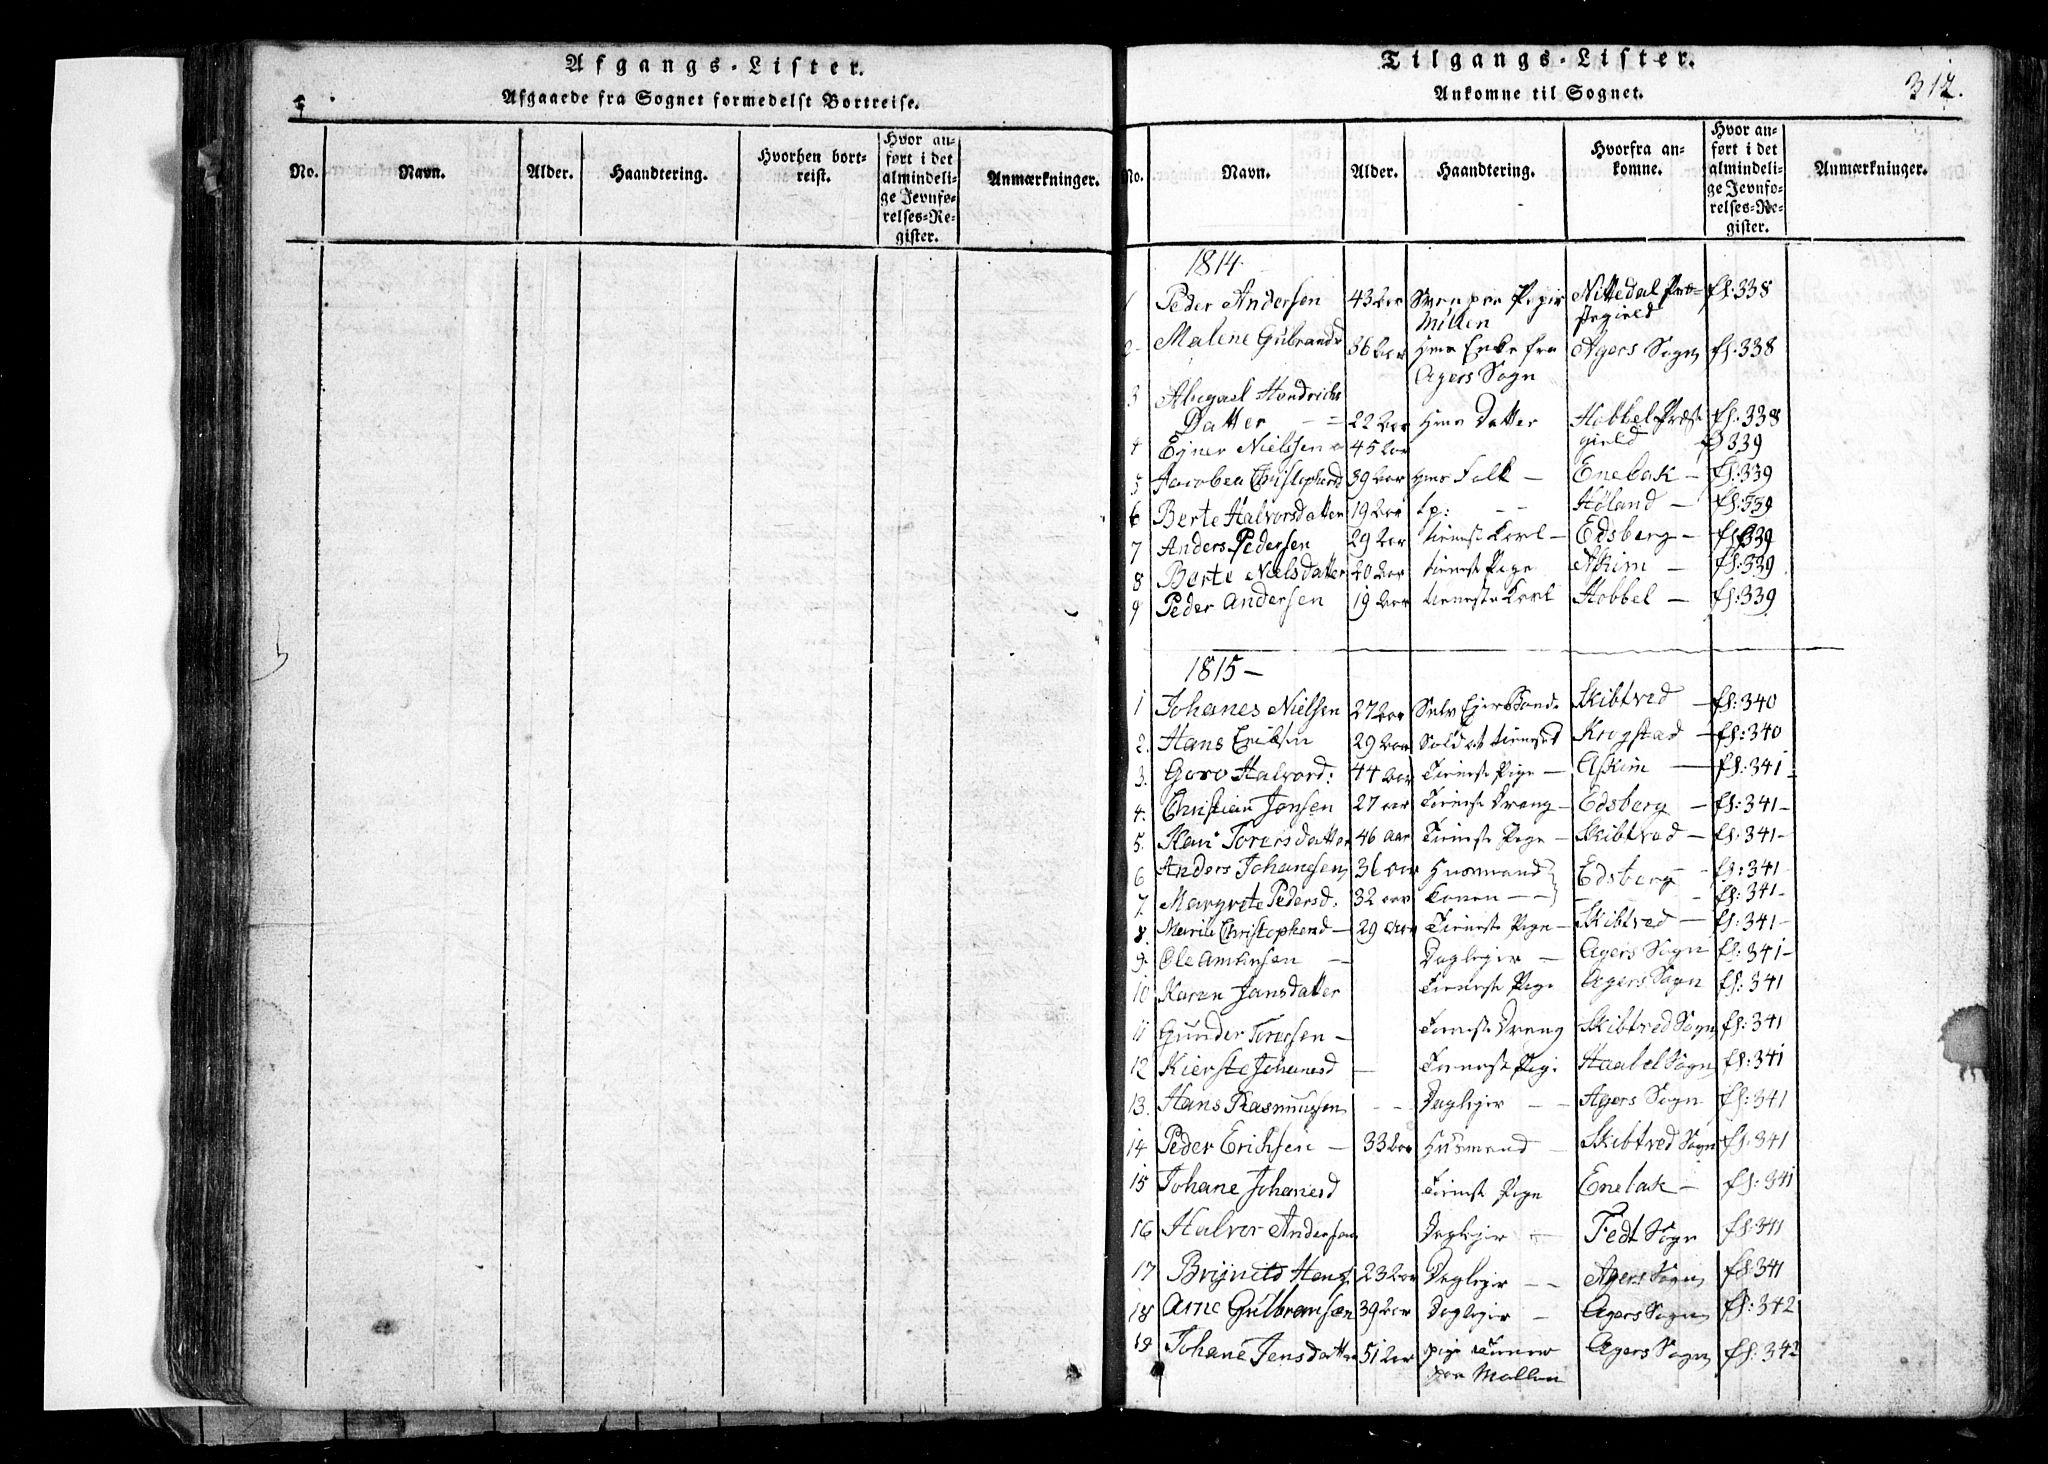 Afgangs-Lister.
Afgaaede fra Sognet formedelst Bortreise.
No.
Navn.
Alder.
Haandtering.
Hvorhen bort-
reist.
Hvor an-
ført i det
almindeli-
ge Jevnfø-
relses-Re-
gister.
Anmærkninger.
Tilgangs-Lister.
Ankomne til Sognet.
312.
No.
Navn.
Alder.
Haandtering.
Hvorfra an-
komne.
Hvor an-
ført i det
almindeli-
ge Jevnfø-
relses-Re-
gister.
Anmærkninger.
1814
1 Peder Andersen 43 aar paa Papir Nittedal Præ- fl:338
Millen stegield
2 Malene Gulbrands 36 aar Enke fra Agers Sogn fl:338
Agers Sogn
3 Abegael Hendrichs
Datter 22 aar Datter Hobbel Præste fl:338
4 Ejner Nielssen 45 aar gield fl 339
5 Jacobea Christophersd 39 aar Folk - Enebak - fl:339
6 Berte Halvorsdatter 19 aar Høland - fl:339
7 Anders Pedersen 29 aar tieneste Karl - Edsberg - fl:339
8 Berte Nielsdatter 20 aar tieneste Pige Askim - fl:339
9 Peder Andersen 19 aar tieneste Karl Hobbel - fl:339
1815 -
1 Johanes Nielsen 27 aar Selv Ejer Bonde Skibtved - fl:340
2. Hans Eriksen 29 aar Soldat Krogstad - fl:340
3. Goro Halvord: 44 aar Tieneste Pige - Askim - fl:341
4. Christian Jonsen 27 aar Tieneste Dreng - Edsberg - fl:341-
5. Kari Torersdatter 46 aar Tieneste Pige - Skibtved - fl:341-
6 Anders Johansen 36 aar Husmand Edsberg - fl:341
7. Margrete Pedersd. 32 aar Konen - - fl:341-
8. Marie Christophersd - 29 aar Tieneste Pige - Skibtved - fl:341-
9. Ole - Daglejer - Agers Sogn fl:341-
10 Karen Jansdatter Tieneste Pige Agers Sogn fl:341
11 Gunder Torersen - Tieneste Dreng Skibtved Sogn fl:341
12 Kierste Johanesd - Tieneste Pige Haabel Sogn fl:341
13. Hans Rasmussen - - Daglejer - - Agers Sogn fl:341
14 Peder Erichsen - 33 aar Husmand - Skibtved Sogn fl:341
15 Johane Johanesd Tieneste Pige Enebak - fl:341
16 Halvor Andersen Daglejer - Fedt Sogn fl:341
17 Hans 23 aar Daglejer - - Agers Sogn fl:341
18 Arne Gulbransen 39 aar Daglejer - Agers Sogn fl:342
19 Johane Jensdatter 51 aar Agers Sogn fl:342
paa Mollen